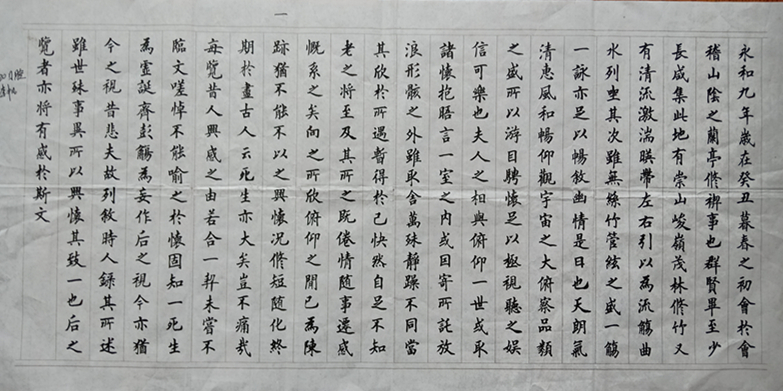 一
永和九年歲在癸丑暮春之初會於會
稽山陰之蘭亭修禊事也群賢畢至少
長咸集此地有崇山峻嶺茂林修竹又
有清流激湍暎帶左右引以為流觴曲
水列坐其次雖無絲竹管絃之盛一觴
一詠亦足以暢敘幽情是日也天朗氣
清惠風和暢仰觀宇宙之大俯察品類
之盛所以游目騁懷足以極視聽之娛
信可樂也夫人之相與俯仰一世或取
諸懷抱晤言一室之內或因寄所託放
浪形骸之外雖取舍萬殊靜躁不同當
其欣於所遇暫得於己快然自足不知
老之將至及其所之既倦情隨事遷感
慨系之矣向之所欣俯仰之間已為陳
跡猶不能不以之興懷況修短隨化終
期於盡古人云死生亦大矣豈不痛哉
每覽昔人興感之由若合一契未嘗不
臨文嗟悼不能喻之於懷固知一死生
為虛誕齊彭觴為妄作后之視今亦猶
今之視昔悲夫故列敘時人錄其所述
雖世殊事異所以興懷其致一也后之
覽者亦將有感於斯文